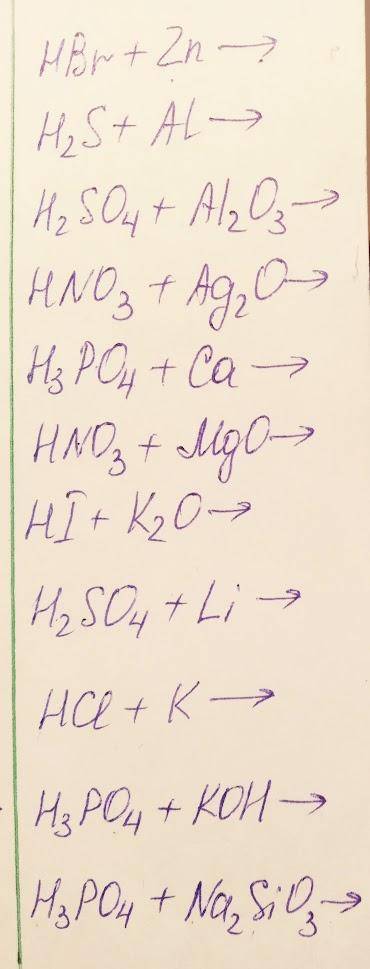 HBr + Zn →
H₂S + Al →
H₂SO₄ + Al₂O₃ →
HNO₃ + Ag₂O →
H₃PO₄ + Ca →
HNO₃ + MgO →
HI + K₂O →
H₂SO₄ + Li →
HCl + K →
H₃PO₄ + KOH →
H₃PO₄ + Na₂SiO₃ →